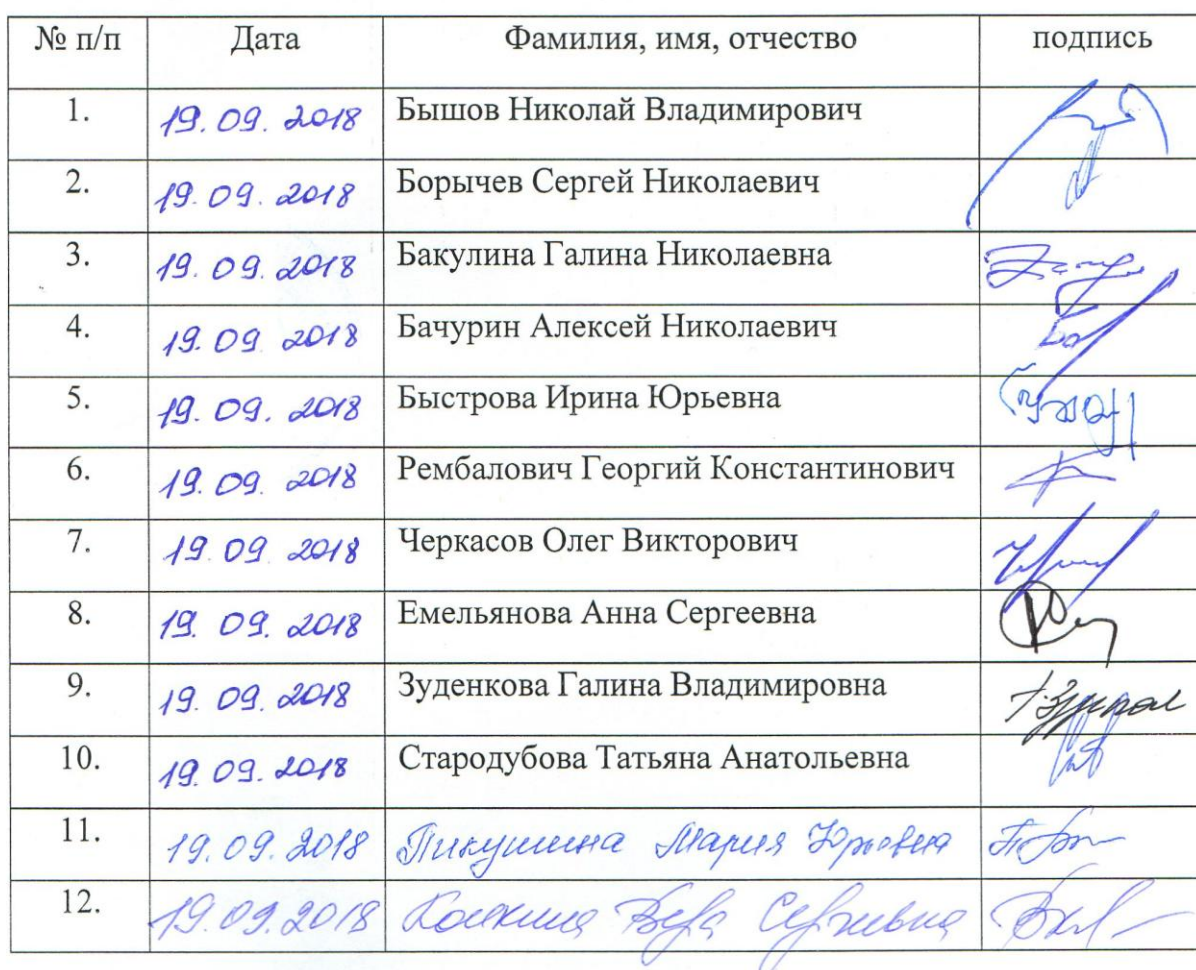 № п/п Дата Фамилия, имя, отчество подпись
1. 19.09.2018 Бышов Николай Владимирович
2. 19.09.2018 Борычев Сергей Николаевич
3. 19.09.2018 Бакулина Галина Николаевна
4. 19.09.2018 Бачурин Алексей Николаевич
5. 19.09.2018 Быстрова Ирина Юрьевна
6. 19.09.2018 Рембалович Георгий Константинович
7. 19.09.2018 Черкасов Олег Викторович
8. 19.09.2018 Емельянова Анна Сергеевна
9. 19.09.2018 Зуденкова Галина Владимировна
10. 19.09.2018 Стародубова Татьяна Анатольевна
11. 19.09.2018 Пикушина Мария Юрьевна
12. 19.09.2018 Вера Сергеевна